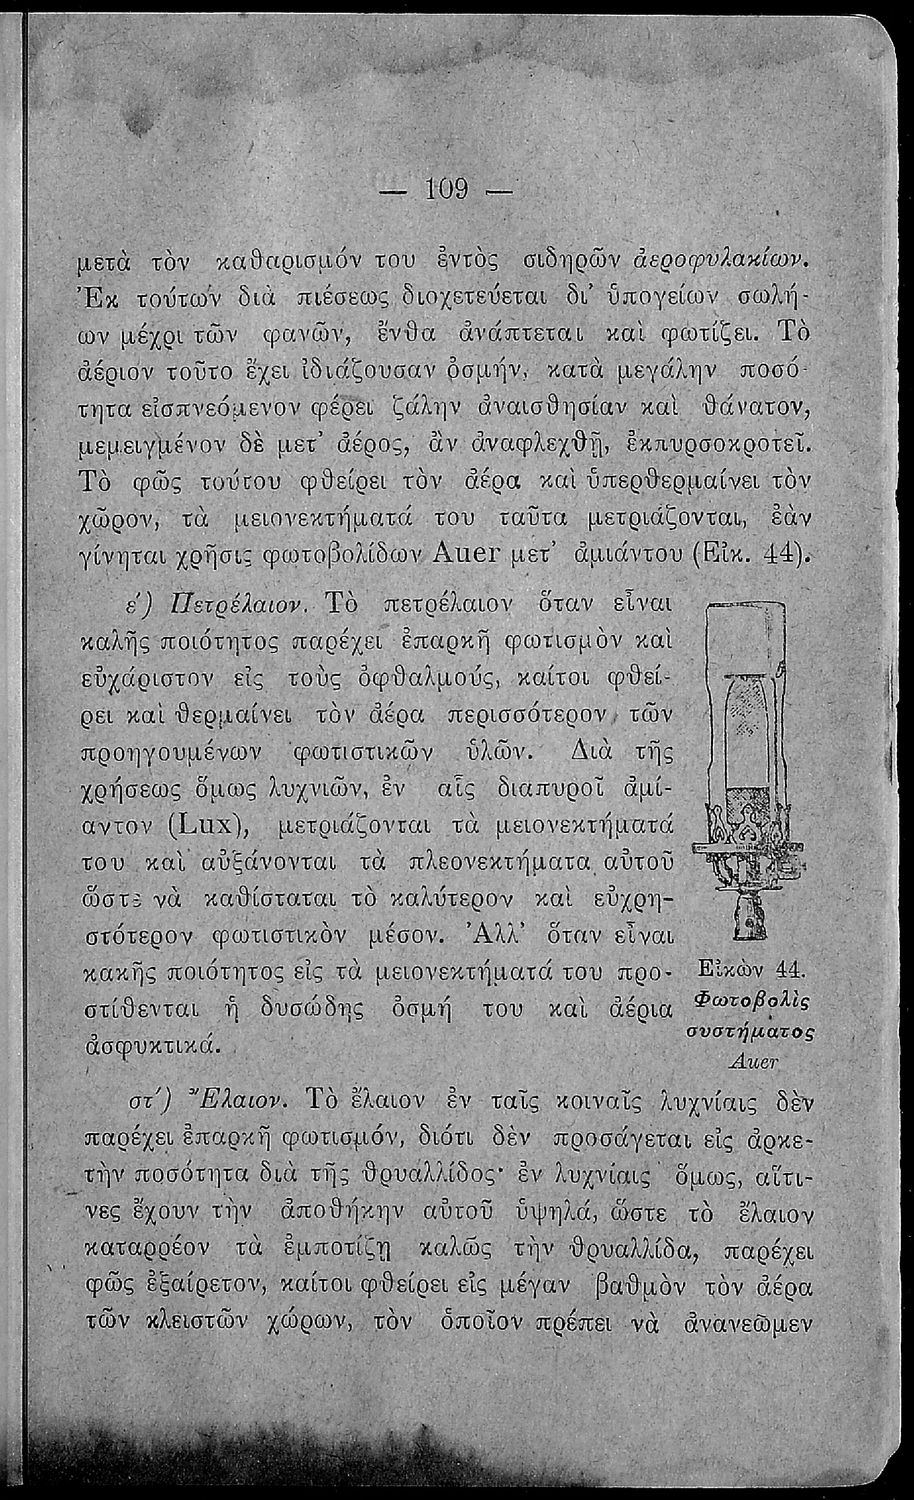 — 109 —
μετὰ τὸν καθαρισμόν του ἐντὸς σιδηρῶν ἀεροφυλακίων.
Ἐκ τούτων διὰ πιέσεως διοχετεύεται δι’ ὑπογείων σωλή-
ων μέχρι τῶν φανῶν, ἔνθα ἀνάπτεται καὶ φωτίζει. Τὸ
ἀέριον τοῦτο ἔχει ἰδιάζουσαν ὀσμήν, κατὰ μεγάλην ποσό-
τητα εἰσπνεόμενον φέρει ζάλην ἀναισθησίαν καὶ θάνατον,
μεμειγμένον δὲ μετ’ ἀέρος, ἂν ἀναφλεχθῇ, ἐκπυρσοκροτεῖ.
Τὸ φῶς τούτου φθείρει τὸν ἀέρα καὶ ὑπερθερμαίνει τὸν
χῶρον, τὰ μειονεκτήματά του ταῦτα μετριάζονται, ἐὰν
γίνηται χρῆσις φωτοβολίδων Auer μετ’ ἀμιάντου (Εἰκ. 44).
ε΄) Πετρέλαιον. Τὸ πετρέλαιον ὅταν εἶναι
καλῆς ποιότητος παρέχει ἐπαρκῆ φωτισμὸν καὶ
εὐχάριστον εἰς τοὺς ὀφθαλμούς, καίτοι φθεί-
ρει καὶ θερμαίνει τὸν ἀέρα περισσότερον τῶν
προηγουμένων φωτιστικῶν ὑλῶν. Διὰ τῆς
χρήσεως ὅμως λυχνιῶν, ἐν αἷς διαπυροῖ ἀμί-
αντον (Lux), μετριάζονται τὰ μειονεκτήματά
του καὶ αὐξάνονται τὰ πλεονεκτήματα αὐτοῦ
ὥστε νὰ καθίσταται τὸ καλύτερον καὶ εὐχρη-
στότερον φωτιστικὸν μέσον. Ἀλλ’ ὅταν εἶναι
κακῆς ποιότητος εἰς τὰ μειονεκτήματά του προ-
στίθενται ἡ δυσώδης ὀσμή του καὶ ἀέρια
ἀσφυκτικά.
Εἰκὼν 44.
Φωτοβολὶς
συστήματος
Auer
στ΄) Ἔλαιον. Τὸ ἔλαιον ἐν ταῖς κοιναῖς λυχνίαις δὲν
παρέχει ἐπαρκῆ φωτισμόν, διότι δὲν προσάγεται εἰς ἀρκε-
τὴν ποσότητα διὰ τῆς θρυαλλίδος· ἐν λυχνίαις ὅμως, αἵτι-
νες ἔχουν τὴν ἀποθήκην αὐτοῦ ὑψηλά, ὥστε τὸ ἔλαιον
καταρρέον τὰ ἐμποτίζῃ καλῶς τὴν θρυαλλίδα, παρέχει
φῶς ἐξαίρετον, καίτοι φθείρει εἰς μέγαν βαθμὸν τὸν ἀέρα
τῶν κλειστῶν χώρων, τὸν ὁποῖον πρέπει νὰ ἀνανεῶμεν